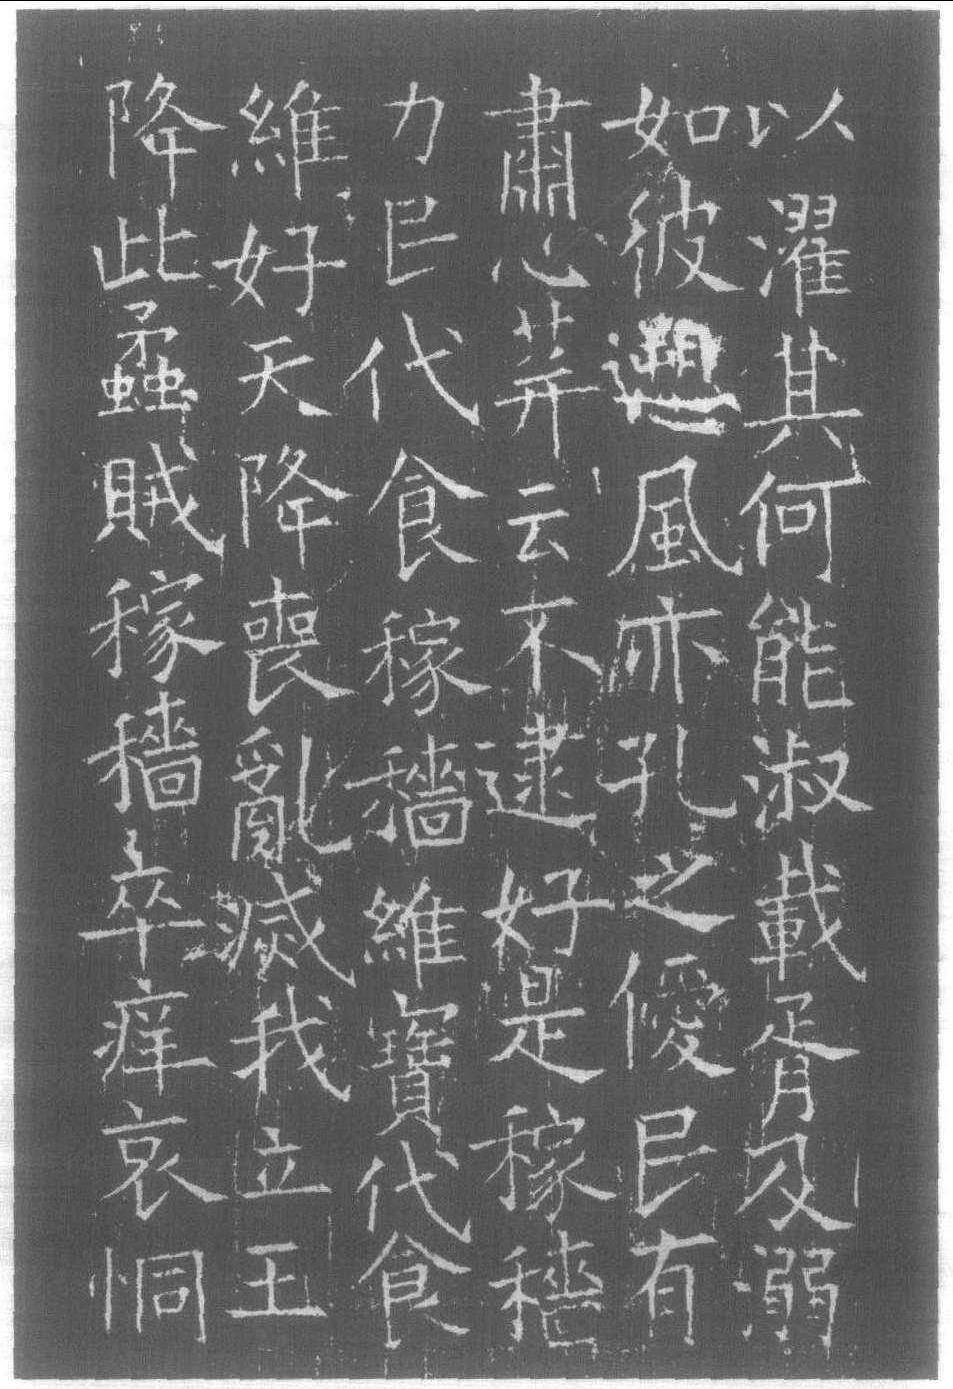 以濯其何能淑載胥及溺
如彼遡風亦孔之僾民有
肅心荓云不逮好是稼穡
力民代食稼穡維寶代食
維好天降喪亂滅我立王
降此蟊賊稼穡卒痒哀恫